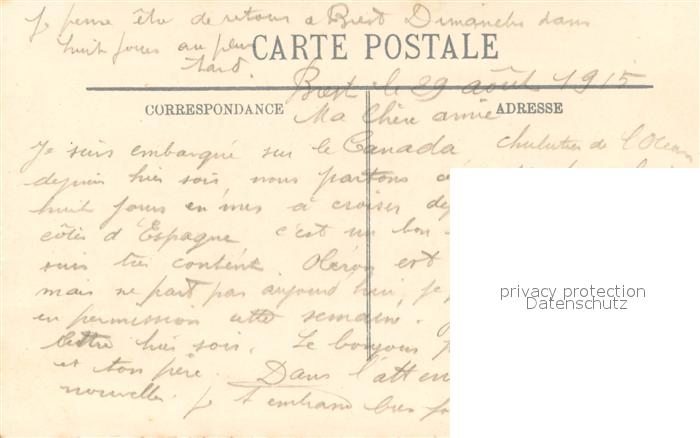 Je pense être de retour à Brest Dimanche dans
huit jours au plus
tard.
CARTE POSTALE
Brest le 29 août 1915
CORRESPONDANCE
ADRESSE
Ma Chère amie
Je suis embarqué sur le Canada chalutier de l'Océan
depuis hier soir, nous partons
huit jours en mer à croiser
côtes d'Espagne c'est un bon
suis très content. Oléron est
mais ne part pas aujourd'hui, je
en permission cette semaine.
lettre hier soir. Le bonjour
et ton père. Dans l'atten
nouvelles je t'embrasse bien
privacy protection
Datenschutz